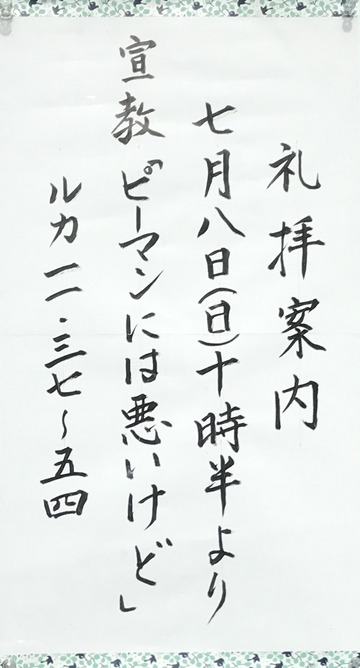 礼拝案内
七月八日(日)十時半より
宣教「ピーマンには悪いけど」
ルカ一一・三七～五四